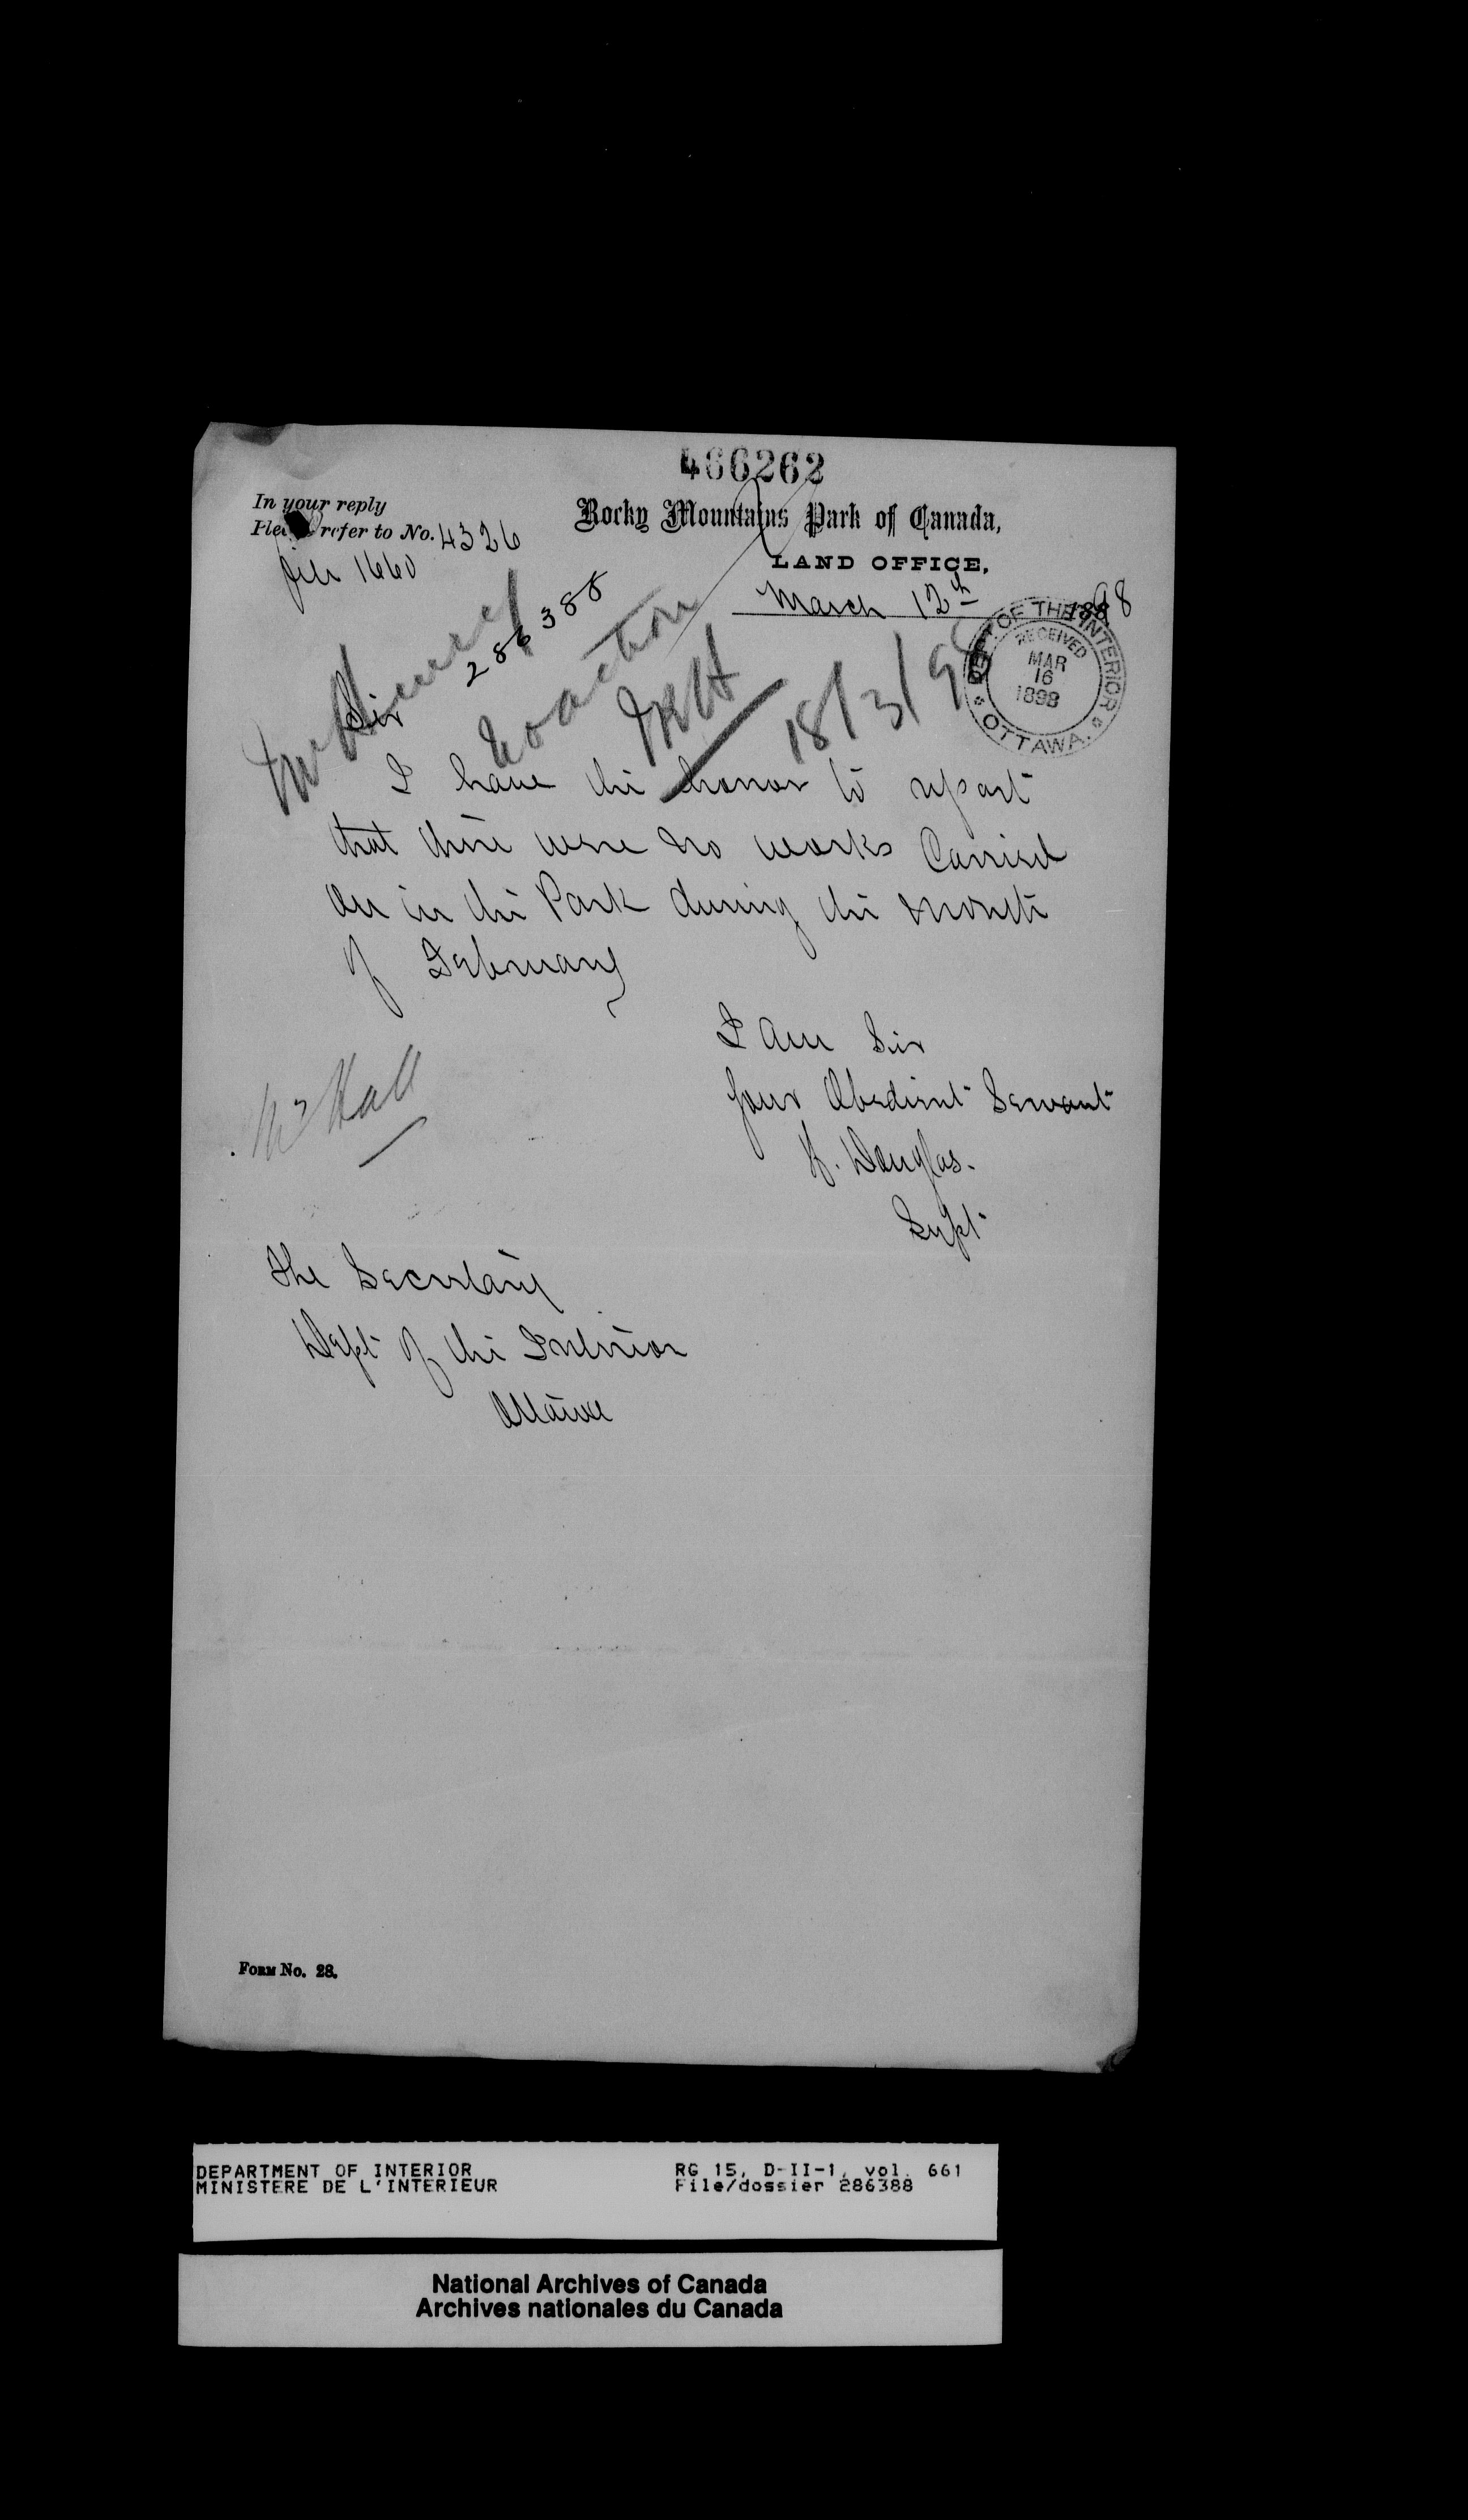 466262
In your reply
Please refer to No. 4326
file 1660
Rocky Mountains Park of Canada,
LAND OFFICE,
March 12th 1898
286388
DEPT. OF THE INTERIOR
RECEIVED
MAR
16
1898
OTTAWA.
No action
18/3/98
Sir
I have the honor to report
that there were no works Carried
on in the Park during the month
of February
I am Sir
Your Obedient Servant
H. Douglas.
Supt
Mr Hall
The Secretary
Dept of the Interior
Ottawa
FORM No. 28.
DEPARTMENT OF INTERIOR
MINISTERE DE L'INTERIEUR
RG 15, D-II-1, vol. 661
File/dossier 286388
National Archives of Canada
Archives nationales du Canada